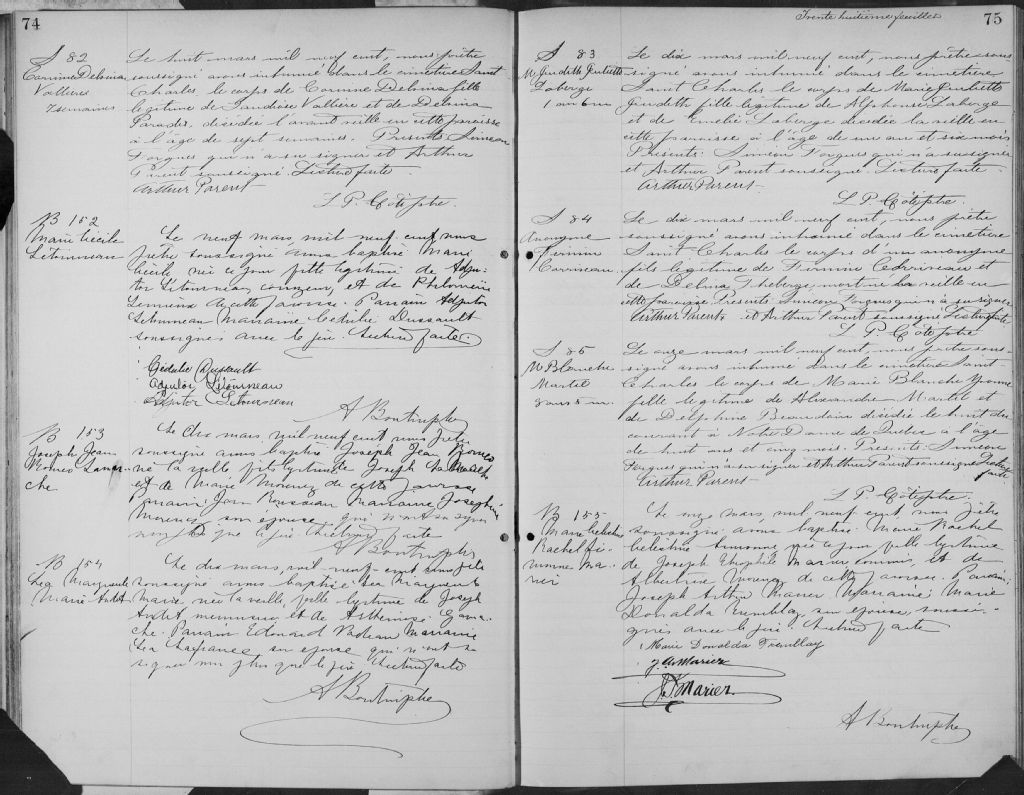 74
S 82
Corinne Delvina
Vallières
7 semaines
Le huit mars mil neuf cent, nous prêtre
soussigné avons inhumé dans le cimetière Saint
Charles, le corps de Corinne Delvina fille
légitime de Vallière et de Delvina
Paradis, décédée l'avant veille en cette paroisse
à l'âge de sept semaines. Présents Siméon
Forgues qui n'a su signer et Arthur
Parent soussigné. Lecture faite
Arthur Parent
L P. Côté ptre.
B 152
Marie Cécile
Letourneau
Le neuf mars, mil neuf cent, nous
prêtre soussigné avons baptisé Marie
Cécile, née ce jour fille légitime de Adju-
tor Létourneau, et de Philomène
Lemieux de cette paroisse. Parrain Adjutor
Letourneau Marraine Cédulie Dussault
soussignés avec le père. Lecture faite.
Cédulie Dussault
Adjutor Létourneau
Adjutor Letourneau
B 153
Joseph Jean
Romeo
che
Le dix mars, mil neuf cent nous prêtre
soussigné avons baptisé Joseph Jean Romeo
né la veille fils légitime de Joseph
et de Marie de cette paroisse
Parrain: Jean Rousseau Marraine Josephine
son épouse, qui n'ont su signer
non plus que le père. Lecture faite
B 154
Léa Marguerite
Marie
Le dix mars, mil neuf cent nous prêtre
soussigné avons baptisé Léa Marguerite
Marie, née la veille, fille légitime de Joseph
et de
Parrain Edouard Marraine
Léa Lafrance son épouse qui n'ont su
signer non plus que le père. Lecture faite
Trente huitième feuillet
75
S 83
M Judith Juliette
Laberge
1 an 6 m
Le dix mars mil neuf cent, nous prêtre sous-
signé avons inhumé dans le cimetière
Saint Charles le corps de Marie Juliette
Judith fille légitime de Alphonse Laberge
et de Emélie Laberge décédée la veille en
cette paroisse à l'âge de un an et six mois
Présents: Siméon Forgues qui n'a su signer
et Arthur Parent soussigné. Lecture faite.
Arthur Parent
L P. Côté ptre.
S 84
Anonyme
Firmin
Corriveau
Le dix mars mil neuf cent, nous prêtre
soussigné avons inhumé dans le cimetière
Saint Charles le corps d'un anonyme
fils légitime de Firmin Corriveau et
de Delina Theberge, mort né la veille en
cette paroisse Présents Siméon Forgues qui n'a su signer
Arthur Parent et Arthur Parent soussigné Lecture faite
L P Côté ptre
S 85
M Blanche
Martel
8 ans 5 m
Le onze mars mil neuf cent, nous prêtre sous-
signé avons inhumé dans le cimetière Saint-
Charles le corps de Marie Blanche Yvonne
fille légitime de Alexandre Martel et
de Delphine Beaudoin décédée le huit du
courant à Notre Dame de Québec à l'âge
de huit ans et cinq mois Présents: Siméon
Forgues qui n'a su signer et Arthur Parent soussigné Lecture
faite
Arthur Parent
L P. Côté ptre.
B 155
Marie Celestine
Rachel
Ma-
rier
Le onze mars, mil neuf cent nous prêtre
soussigné avons baptisé Marie Rachel
Celestine née ce jour fille légitime
de Joseph Théophile Marier commis, et de
Albertine de cette paroisse. Parrain:
Joseph Arthur Marier Marraine: Marie
Donalda Tremblay, son épouse, soussi-
gnés avec le père. Lecture faite
Marie Donalda Tremblay
J. A. Marier
J. T. Marier